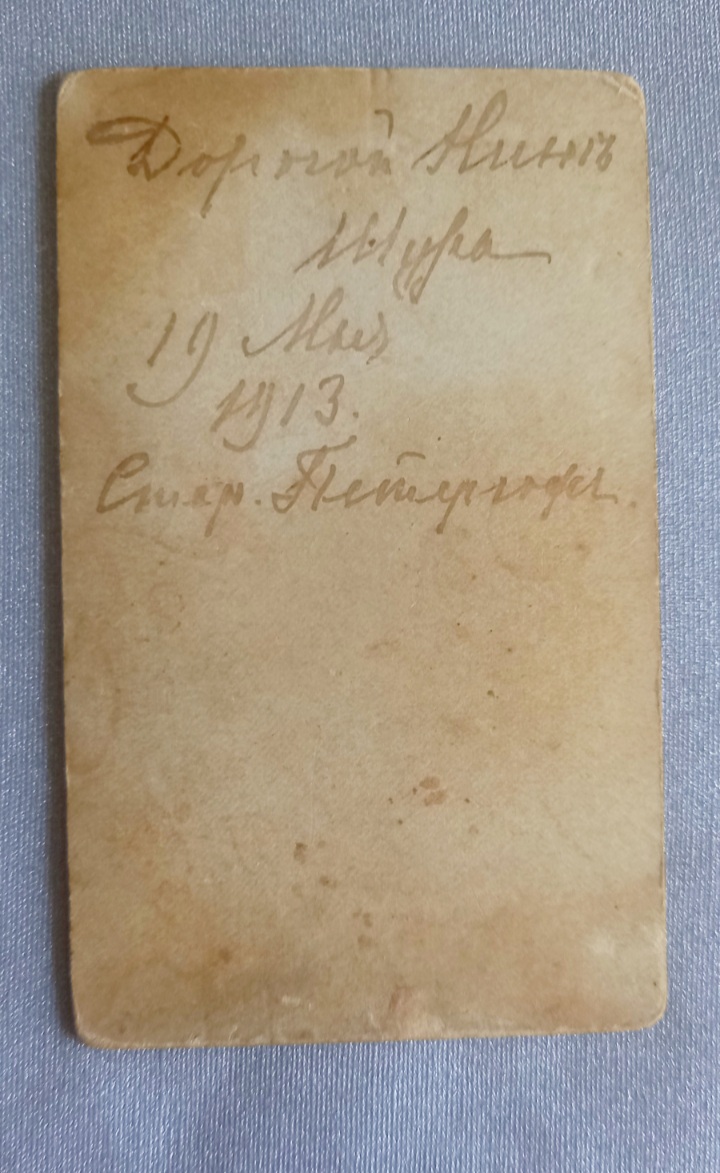 Дорогой Нинѣ
Шура
19 Мая
1913.
Стар. Петергофъ.